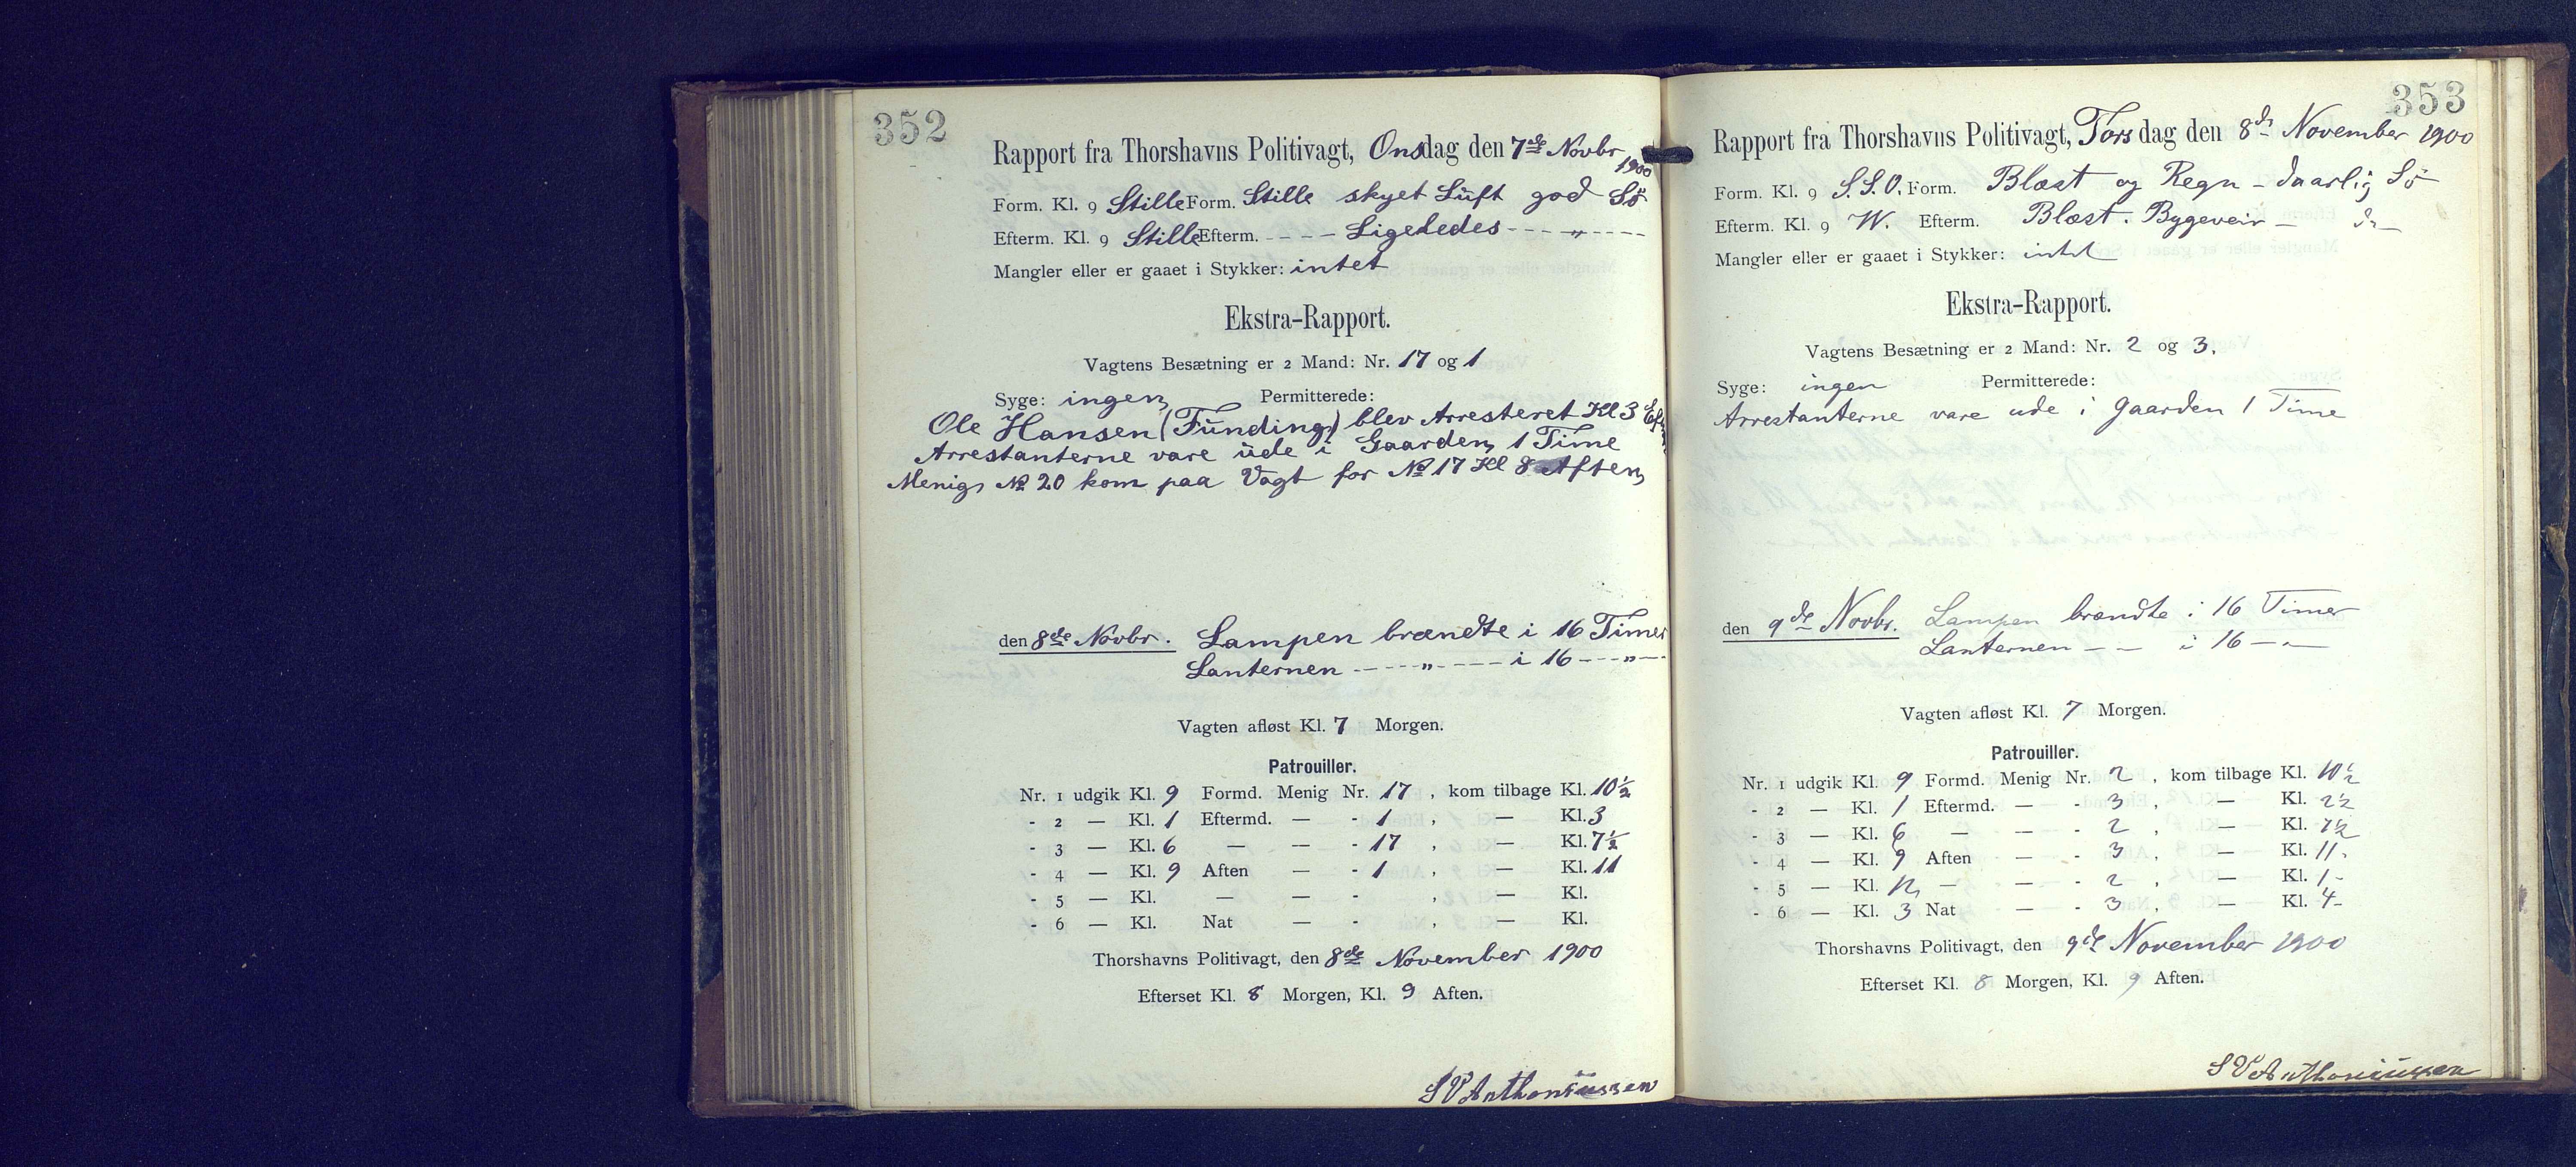 352
Rapport fra Thorshavns Politivagt, Onsdag den 7de Novbr 1900
Form. Kl. 9 Stille Form. Stille skyet Luft god Sö
Efterm. Kl. 9 Stille Efterm. - - - - Ligeledes - - - - „ - - - -
Mangler eller er gaaet i Stykker: intet
Ekstra-Rapport.
Vagtens Besætning er 2 Mand: Nr. 17 og 1
Syge: ingen Permitterede:
Ole Hansen (Funding) blev Arresteret Kl 3
Arrestanterne vare ude i Gaarden 1 Time
Menig № 20 kom paa Vagt for № 17 Kl 8 Aften
den 8de Novbr. Lampen brændte i 16 Timer
Lanternen - - - - „ - - - - i 16 - - - „ - -
Vagten afløst Kl. 7 Morgen.
Patrouiller.
Nr. 1 udgik Kl. 9 Formd. Menig Nr. 17 , kom tilbage Kl. 10½
- 2 — Kl. 1 Eftermd. — - 1 , — Kl. 3
- 3 — Kl. 6 — — - 17 , — Kl. 7½
- 4 — Kl. 9 Aften — - 1 , — Kl. 11
- 5 — Kl. — — - , — Kl.
- 6 — Kl. Nat — - , — Kl.
Thorshavns Politivagt, den 8de November 1900
Efterset Kl. 8 Morgen, Kl. 9 Aften.
S P Anthoniussen
353
Rapport fra Thorshavns Politivagt, Torsdag den 8de November 1900
Form. Kl. 9 S.S.O. Form. Blæst og Regn - daarlig Sö
Efterm. Kl. 9 W. Efterm. Blæst. Bygeveir - do -
Mangler eller er gaaet i Stykker: intet
Ekstra-Rapport.
Vagtens Besætning er 2 Mand: Nr. 2 og 3.
Syge: ingen Permitterede:
Arrestanterne vare ude i Gaarden 1 Time
den 9de Novbr. Lampen brændte i 16 Timer
Lanternen — — i 16 — „ —
Vagten afløst Kl. 7 Morgen.
Patrouiller.
Nr. 1 udgik Kl. 9 Formd. Menig Nr. 2 , kom tilbage Kl. 10½
- 2 — Kl. 1 Eftermd. — - 3 , — Kl. 2½
- 3 — Kl. 6 — — - 2 , — Kl. 7½
- 4 — Kl. 9 Aften — - 3 , — Kl. 11-
- 5 — Kl. 12 — — - 2 , — Kl. 1-
- 6 — Kl. 3 Nat — - 3 , — Kl. 4-
Thorshavns Politivagt, den 9de November 1900
Efterset Kl. 8 Morgen, Kl. 9 Aften.
S P Anthoniussen